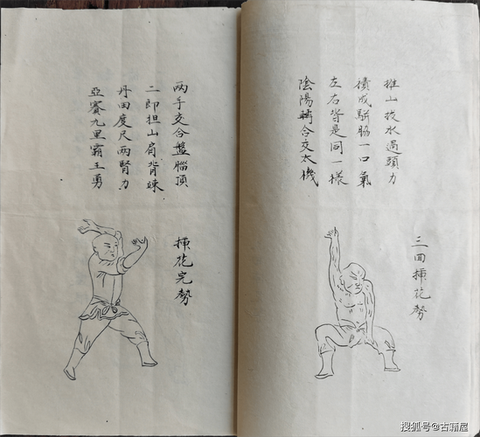 推山拔水過頭力
積成駢脇一口氣
左右皆是同一樣
陰陽轉合交太機
三回插花勢
两手交合盤腦頂
二郎担山肩背竦
丹田度尺两腎力
亞賽九里霸王勇
插花完勢
搜狐号@古籍屋